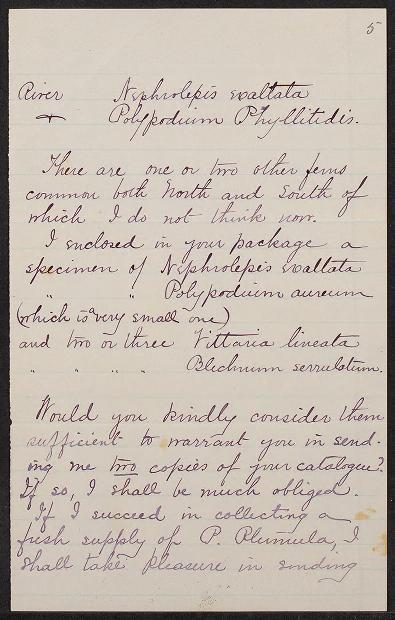 5
River Nephrolepis exaltata
+ Polypodium Phyllitidis.
There are one or two other ferns
common both North and South of
which I do not think now.
I enclosed in your package a
specimen of Nephrolepis exaltata
" " Polypodium aureum
(which is a very small one)
and two or three Vittaria lineata
" " " " Blechnum serrulatum.
Would you kindly consider them
sufficient to warrant you in send-
ing me two copies of your catalogue?
If so, I shall be much obliged.
If I succeed in collecting a
fresh supply of P. Plumula, I
shall take pleasure in sending